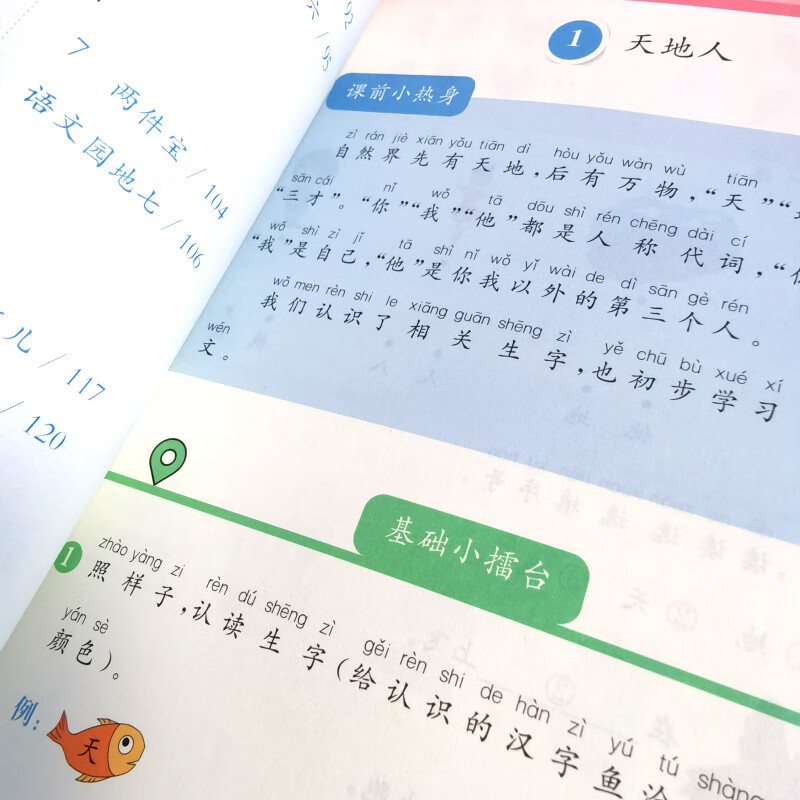 六 / 95
92
7 两件宝 / 104
语文园地七 / 106
儿 / 117
/ 120
1 天地人
课前小热身
zì rán jiè xiān yǒu tiān dì hòu yǒu wàn wù tiān
自然界先有天地，后有万物，“天”“
sān cái nǐ wǒ tā dōu shì rén chēng dài cí
“三才”。“你”“我”“他”都是人称代词，“
wǒ shì zì jǐ tā shì nǐ wǒ yǐ wài de dì sān gè rén
“我”是自己，“他”是你我以外的第三个人。
wǒ men rèn shi le xiāng guān shēng zì yě chū bù xué xí
我们认识了相关生字，也初步学习
wén
文。
基础小擂台
zhào yàng zi rèn dú shēng zì gěi rèn shi de hàn zì yú tú shàng
1 照样子，认读生字（给认识的汉字鱼涂
yán sè
颜色）。
例：
天